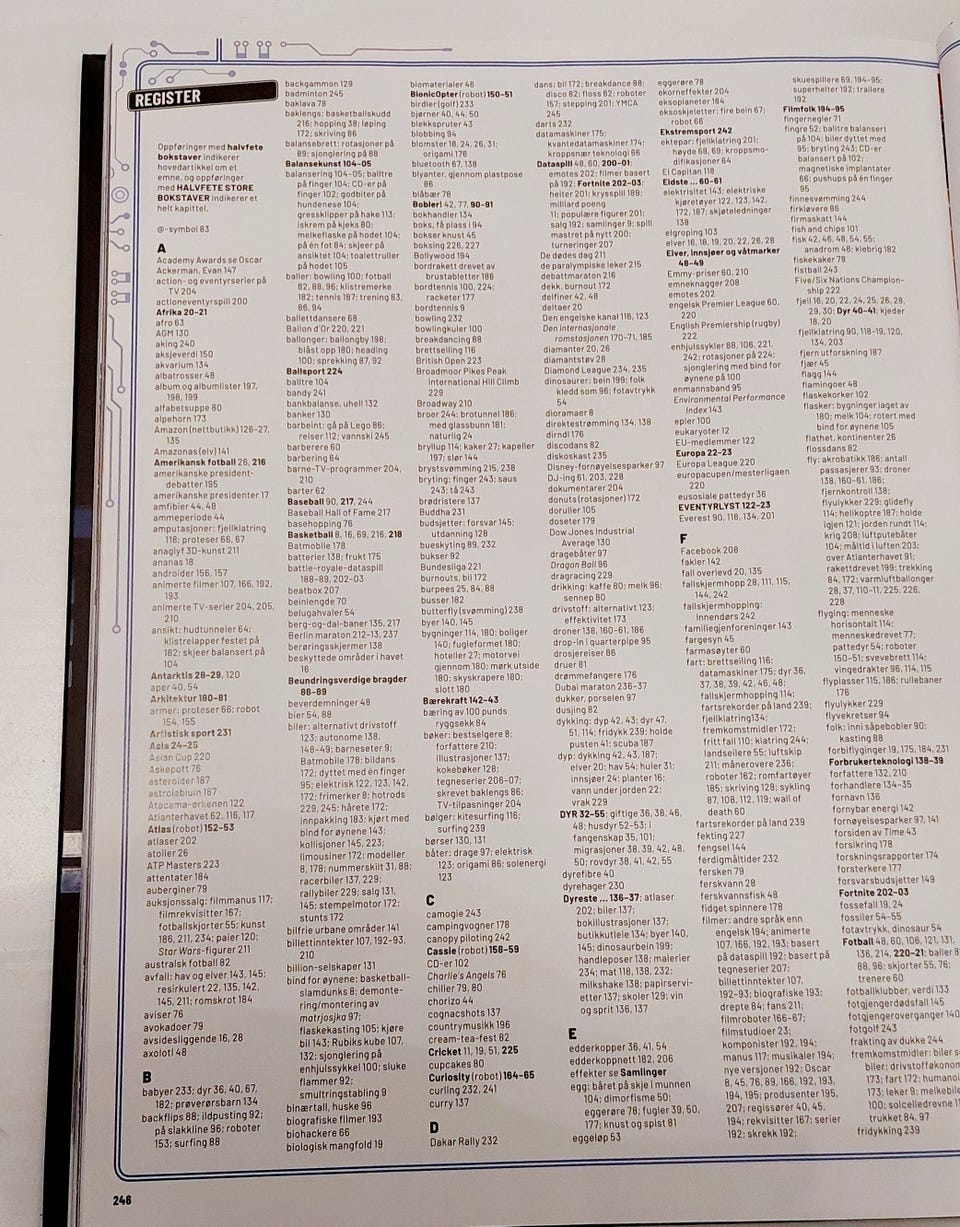 REGISTER
Oppføringer med halvfete
bokstaver indikerer
hovedartikkel om et
emne, og oppføringer
med HALVFETE STORE
BOKSTAVER indikerer et
helt kapittel.
@-symbol 83
A
Academy Awards se Oscar
Ackerman, Evan 147
action- og eventyrserier på
TV 204
actioneventyrspill 200
Afrika 20–21
afro 63
AGM 130
aking 240
aksjeverdi 150
akvarium 134
albatrosser 48
album og albumlister 197,
198, 199
alfabetsuppe 80
alpehorn 173
Amazon (nettbutikk) 126–27,
135
Amazonas (elv) 141
Amerikansk fotball 26, 216
amerikanske president-
debatter 195
amerikanske presidenter 17
amfibier 44, 48
ammeperiode 44
amputasjoner: fjellklatring
118; proteser 66, 67
anaglyf 3D-kunst 211
ananas 18
androider 156, 157
animerte filmer 107, 166, 192,
193
animerte TV-serier 204, 205,
210
ansikt: hudtunneler 64;
klistrelapper festet på
182; skjeer balansert på
104
Antarktis 28–29, 120
aper 40, 54
Arkitektur 180–81
armer: proteser 66; robot
154, 155
Artistisk sport 231
Asia 24–25
Asian Cup 220
Askepott 76
asteroider 187
astrolabium 187
Atacama-ørkenen 122
Atlanterhavet 62, 116, 117
Atlas (robot) 152–53
atlaser 202
atoller 26
ATP Masters 223
attentater 184
auberginer 79
auksjonssalg: filmmanus 117;
filmrekvisitter 167;
fotballskjorter 55; kunst
186, 211, 234; paier 120;
Star Wars-figurer 211
australsk fotball 82
avfall: hav og elver 143, 145;
resirkulert 22, 135, 142,
145, 211; romskrot 184
aviser 76
avokadoer 79
avsidesliggende 16, 28
axolotl 48
B
babyer 233; dyr 36, 40, 67,
182; prøverørsbarn 134
backflips 88; ildpusting 92;
på slakkline 96; roboter
153; surfing 88
backgammon 129
badminton 245
baklava 78
baklengs: basketballskudd
216; hopping 38; løping
172; skriving 86
balansebrett: rotasjoner på
89; sjonglering på 88
Balansekunst 104–05
balansering 104–05; balltre
på finger 104; CD-er på
finger 102; godbiter på
hundenese 104;
gressklipper på hake 113;
iskrem på kjeks 80;
melkeflaske på hodet 104;
på én fot 84; skjeer på
ansiktet 104; toalettruller
på hodet 105
baller: bowling 100; fotball
82, 88, 96; klistremerke
182; tennis 187; trening 83,
86, 94
ballettdansere 68
Ballon d'Or 220, 221
ballonger: ballongby 198;
blåst opp 180; heading
100; sprekking 87, 92
Ballsport 224
balltre 104
bandy 241
bankbalanse, uhell 132
banker 130
barbeint: gå på Lego 86;
reiser 112; vannski 245
barberere 60
barbering 64
barne-TV-programmer 204,
210
barter 62
Baseball 90, 217, 244
Baseball Hall of Fame 217
basehopping 76
Basketball 8, 16, 69, 216, 218
Batmobile 178
batterier 138; frukt 175
battle-royale-dataspill
188–89, 202–03
beatbox 207
beinlengde 70
belugahvaler 54
berg-og-dal-baner 135, 217
Berlin maraton 212–13, 237
berøringsskjermer 138
beskyttede områder i havet
16
Beundringsverdige bragder
88–89
beverdemninger 48
bier 54, 88
biler: alternativt drivstoff
123; autonome 138,
148–49; barneseter 9;
Batmobile 178; bildans
172; dyttet med én finger
95; elektrisk 122, 123, 142,
172; frimerker 8; hotrods
229, 245; hårete 172;
innpakking 183; kjørt med
bind for øynene 143;
kollisjoner 145, 223;
limousiner 172; modeller
8, 178; nummerskilt 31, 88;
racerbiler 137, 229;
rallybiler 229; salg 131,
145; stempelmotor 172;
stunts 172
bilfrie urbane områder 141
billettinntekter 107, 192–93,
210
billion-selskaper 131
bind for øynene: basketball-
slamdunks 8; demonte-
ring/montering av
matrjosjka 97;
flaskekasting 105; kjøre
bil 143; Rubiks kube 107,
132; sjonglering på
enhjulssykkel 100; sluke
flammer 92;
smultringstabling 9
binærtall, huske 96
biografiske filmer 193
biohackere 66
biologisk mangfold 19
biomaterialer 46
BionicOpter (robot) 150–51
birdier (golf) 233
bjørner 40, 44, 50
blekkspruter 43
blobbing 94
blomster 18, 24, 26, 31;
origami 176
bluetooth 67, 138
blyanter, gjennom plastpose
86
blåbær 76
Bobler! 42, 77, 90–91
bokhandler 134
boks, få plass i 94
bokser knust 45
boksing 226, 227
Bollywood 194
bordrakett drevet av
brustabletter 186
bordtennis 100, 224;
racketer 177
bordtennis 9
bowling 232
bowlingkuler 100
breakdancing 88
brettseiling 116
British Open 223
Broadmoor Pikes Peak
International Hill Climb
229
Broadway 210
broer 244; brotunnel 186;
med glassbunn 181;
naturlig 24
bryllup 114; kaker 27; kapeller
197; slør 144
brystsvømming 215, 238
bryting: finger 243; saus
243; tå 243
brødristere 137
Buddha 231
budsjetter: forsvar 145;
utdanning 128
bueskyting 89, 232
bukser 92
Bundesliga 221
burnouts, bil 172
burpees 25, 84, 88
busser 182
butterfly (svømming) 238
byer 140, 145
bygninger 114, 180; boliger
140; fugleformet 180;
hoteller 27; motorvei
gjennom 180; mørk utside
180; skyskrapere 180;
slott 180
Bærekraft 142–43
bæring av 100 punds
ryggsekk 84
bøker: bestselgere 8;
forfattere 210;
illustrasjoner 137;
kokebøker 128;
tegneserier 206–07;
skrevet baklengs 86;
TV-tilpasninger 204
bølger: kitesurfing 116;
surfing 239
børser 130, 131
båter: drage 97; elektrisk
123; origami 86; solenergi
123
C
camogie 243
campingvogner 178
canopy piloting 242
Cassie (robot) 158–59
CD-er 102
Charlie's Angels 76
chilier 79, 80
chorizo 44
cognacshots 137
countrymusikk 196
cream-tea-fest 82
Cricket 11, 19, 51, 225
cupcakes 80
Curiosity (robot) 164–65
curling 232, 241
curry 137
D
Dakar Rally 232
dans: bil 172; breakdance 88;
disco 82; floss 82; roboter
157; stepping 201; YMCA
245
darts 232
datamaskiner 175;
kvantedatamaskiner 174;
kroppsnær teknologi 66
Dataspill 48, 60, 200–01;
emotes 202; filmer basert
på 192; Fortnite 202–03;
helter 201; krysspill 189;
milliard poeng
11; populære figurer 201;
salg 192; samlinger 9; spill
mastret på nytt 200;
turneringer 207
De dødes dag 211
de paralympiske leker 215
debattmaraton 216
dekk, burnout 172
delfiner 42, 48
deltaer 20
Den engelske kanal 116, 123
Den internasjonale
romstasjonen 170–71, 185
diamanter 20, 26
diamantstøv 28
Diamond League 234, 235
dinosaurer: bein 199; folk
kledd som 96; fotavtrykk
54
dioramaer 8
direktestrømming 134, 138
dirndl 176
discodans 82
diskoskast 235
Disney-fornøyelsesparker 97
DJ-ing 61, 203, 228
dokumentarer 204
donuts (rotasjoner) 172
doruller 105
doseter 179
Dow Jones Industrial
Average 130
dragebåter 97
Dragon Ball 96
dragracing 229
drikking: kaffe 80; melk 96;
sennep 80
drivstoff: alternativt 123;
effektivitet 173
droner 138, 160–61, 186
drop-in i quarterpipe 95
drosjereiser 86
druer 81
drømmefangere 176
Dubai maraton 236–37
dukker, porselen 97
dusjing 82
dykking: dyp 42, 43; dyr 47,
51, 114; fridykk 239; holde
pusten 41; scuba 187
dyp: dykking 42, 43, 187;
elver 20; hav 54; huler 31;
innsjøer 24; planter 16;
vann under jorden 22;
vrak 229
DYR 32–55; giftige 36, 38, 46,
48; husdyr 52–53; i
fangenskap 35, 101;
migrasjoner 38, 39, 42, 48,
50; rovdyr 38, 41, 42, 55
dyrefibre 40
dyrehager 230
Dyreste ... 136–37; atlaser
202; biler 137;
bokillustrasjoner 137;
butikkutleie 134; byer 140,
145; dinosaurbein 199;
handleposer 138; malerier
234; mat 118, 138, 232;
milkshake 138; papirservi-
etter 137; skoler 129; vin
og sprit 136, 137
E
edderkopper 36, 41, 54
edderkoppnett 182, 206
effekter se Samlinger
egg: båret på skje i munnen
104; dimorfisme 50;
eggerøre 78; fugler 39, 50,
177; knust og spist 81
eggeløp 53
eggerøre 78
ekorneffekter 204
eksoplaneter 184
eksoskjeletter: fire bein 67;
robot 66
Ekstremsport 242
ektepar: fjellklatring 201;
høyde 68, 69; kroppsmo-
difikasjoner 64
El Capitan 118
Eldste ... 60–61
elektrisitet 143; elektriske
kjøretøyer 122, 123, 142,
172, 187; skjøteledninger
138
elgroping 103
elver 16, 18, 19, 20, 22, 26, 28
Elver, innsjøer og våtmarker
48–49
Emmy-priser 60, 210
emneknagger 208
emotes 202
engelsk Premier League 60,
220
English Premiership (rugby)
222
enhjulssykler 88, 106, 221,
242; rotasjoner på 224;
sjonglering med bind for
øynene på 100
enmannsband 95
Environmental Performance
Index 143
epler 100
eukaryoter 12
EU-medlemmer 122
Europa 22–23
Europa League 220
europacupen/mesterligaen
220
eusosiale pattedyr 36
EVENTYRLYST 122–23
Everest 90, 118, 134, 201
F
Facebook 208
fakler 142
fall overlevd 20, 135
fallskjermhopp 28, 111, 115,
144, 242
fallskjermhopping:
innendørs 242
familiegjenforeninger 143
fargesyn 45
farmasøyter 60
fart: brettseiling 116;
datamaskiner 175; dyr 36,
37, 38, 39, 42, 46, 48;
fallskjermhopping 114;
fartsrekorder på land 239;
fjellklatring134;
fremkomstmidler 172;
fritt fall 110; klatring 244;
landseilere 55; luftskip
211; månerovere 236;
roboter 162; romfartøyer
185; skriving 128; sykling
87, 108, 112, 119; wall of
death 60
fartsrekorder på land 239
fekting 227
fengsel 144
ferdigmåltider 232
fersken 79
ferskvann 28
ferskvannsfisk 48
fidget spinnere 178
filmer: andre språk enn
engelsk 194; animerte
107, 166, 192, 193; basert
på dataspill 192; basert på
tegneserier 207;
billettinntekter 107,
192–93; biografiske 193;
drepte 84; fans 211;
filmroboter 166–67;
filmstudioer 23;
komponister 192, 194;
manus 117; musikaler 194;
nye versjoner 192; Oscar
8, 45, 76, 89, 166, 192, 193,
194, 195; produsenter 195,
207; regissører 40, 45,
194; rekvisitter 167; serier
192; skrekk 192;
skuespillere 69, 194–95;
superhelter 192; trailere
192
Filmfolk 194–95
fingernegler 71
fingre 52; balltre balansert
på 104; biler dyttet med
95; bryting 243; CD-er
balansert på 102;
magnetiske implantater
66; pushups på én finger
95
finnesvømming 244
firkløvere 86
firmaskatt 144
fish and chips 101
fisk 42, 46, 48, 54, 55;
anadrom 48; klebrig 182
fiskekaker 78
fistball 243
Five/Six Nations Champion-
ship 222
fjell 16, 20, 22, 24, 25, 26, 28,
29, 30; Dyr 40–41; kjeder
18, 20
fjellklatring 90, 118–19, 120,
134, 203
fjern utforskning 187
fjær 45
flagg 144
flamingoer 48
flaskekorker 102
flasker: bygninger laget av
180; melk 104; rotert med
bind for øynene 105
flathet, kontinenter 26
flossdans 82
fly: akrobatikk 186; antall
passasjerer 93; droner
138, 160–61, 186;
fjernkontroll 138;
flyulykker 229; glidefly
114; helikoptre 187; holde
igjen 121; jorden rundt 114;
krig 208; luftputebåter
104; måltid i luften 203;
over Atlanterhavet 91;
rakettdrevet 199; trekking
84, 172; varmluftballonger
28, 37, 110–11, 225, 226,
228
flyging: menneske
horisontalt 114;
menneskedrevet 77;
pattedyr 54; roboter
150–51; svevebrett 114;
vingedrakter 96, 114, 115
flyplasser 115, 186; rullebaner
176
flyulykker 229
flyvekretser 94
folk: inni såpebobler 90;
kasting 88
forbiflyginger 19, 175, 184, 231
Forbrukerteknologi 138–39
forfattere 132, 210
forhandlere 134–35
fornavn 136
fornybar energi 142
fornøyelsesparker 97, 141
forsiden av Time 43
forsikring 178
forskningsrapporter 174
forsterkere 177
forsvarsbudsjetter 149
Fortnite 202–03
fossefall 19, 24
fossiler 54–55
fotavtrykk, dinosaur 54
Fotball 48, 60, 106, 121, 131,
136, 214, 220–21; baller 8
88, 96; skjorter 55, 76;
trenere 60
fotballklubber, verdi 133
fotgjengerdødsfall 145
fotgjengeroverganger 140
fotgolf 243
frakting av dukke 244
fremkomstmidler: biler s
biler; drivstofføkonom
173; fart 172; humanoi
173; leker 9; melkebile
100; solcelledrevne 1
trukket 84, 97
fridykking 239
246